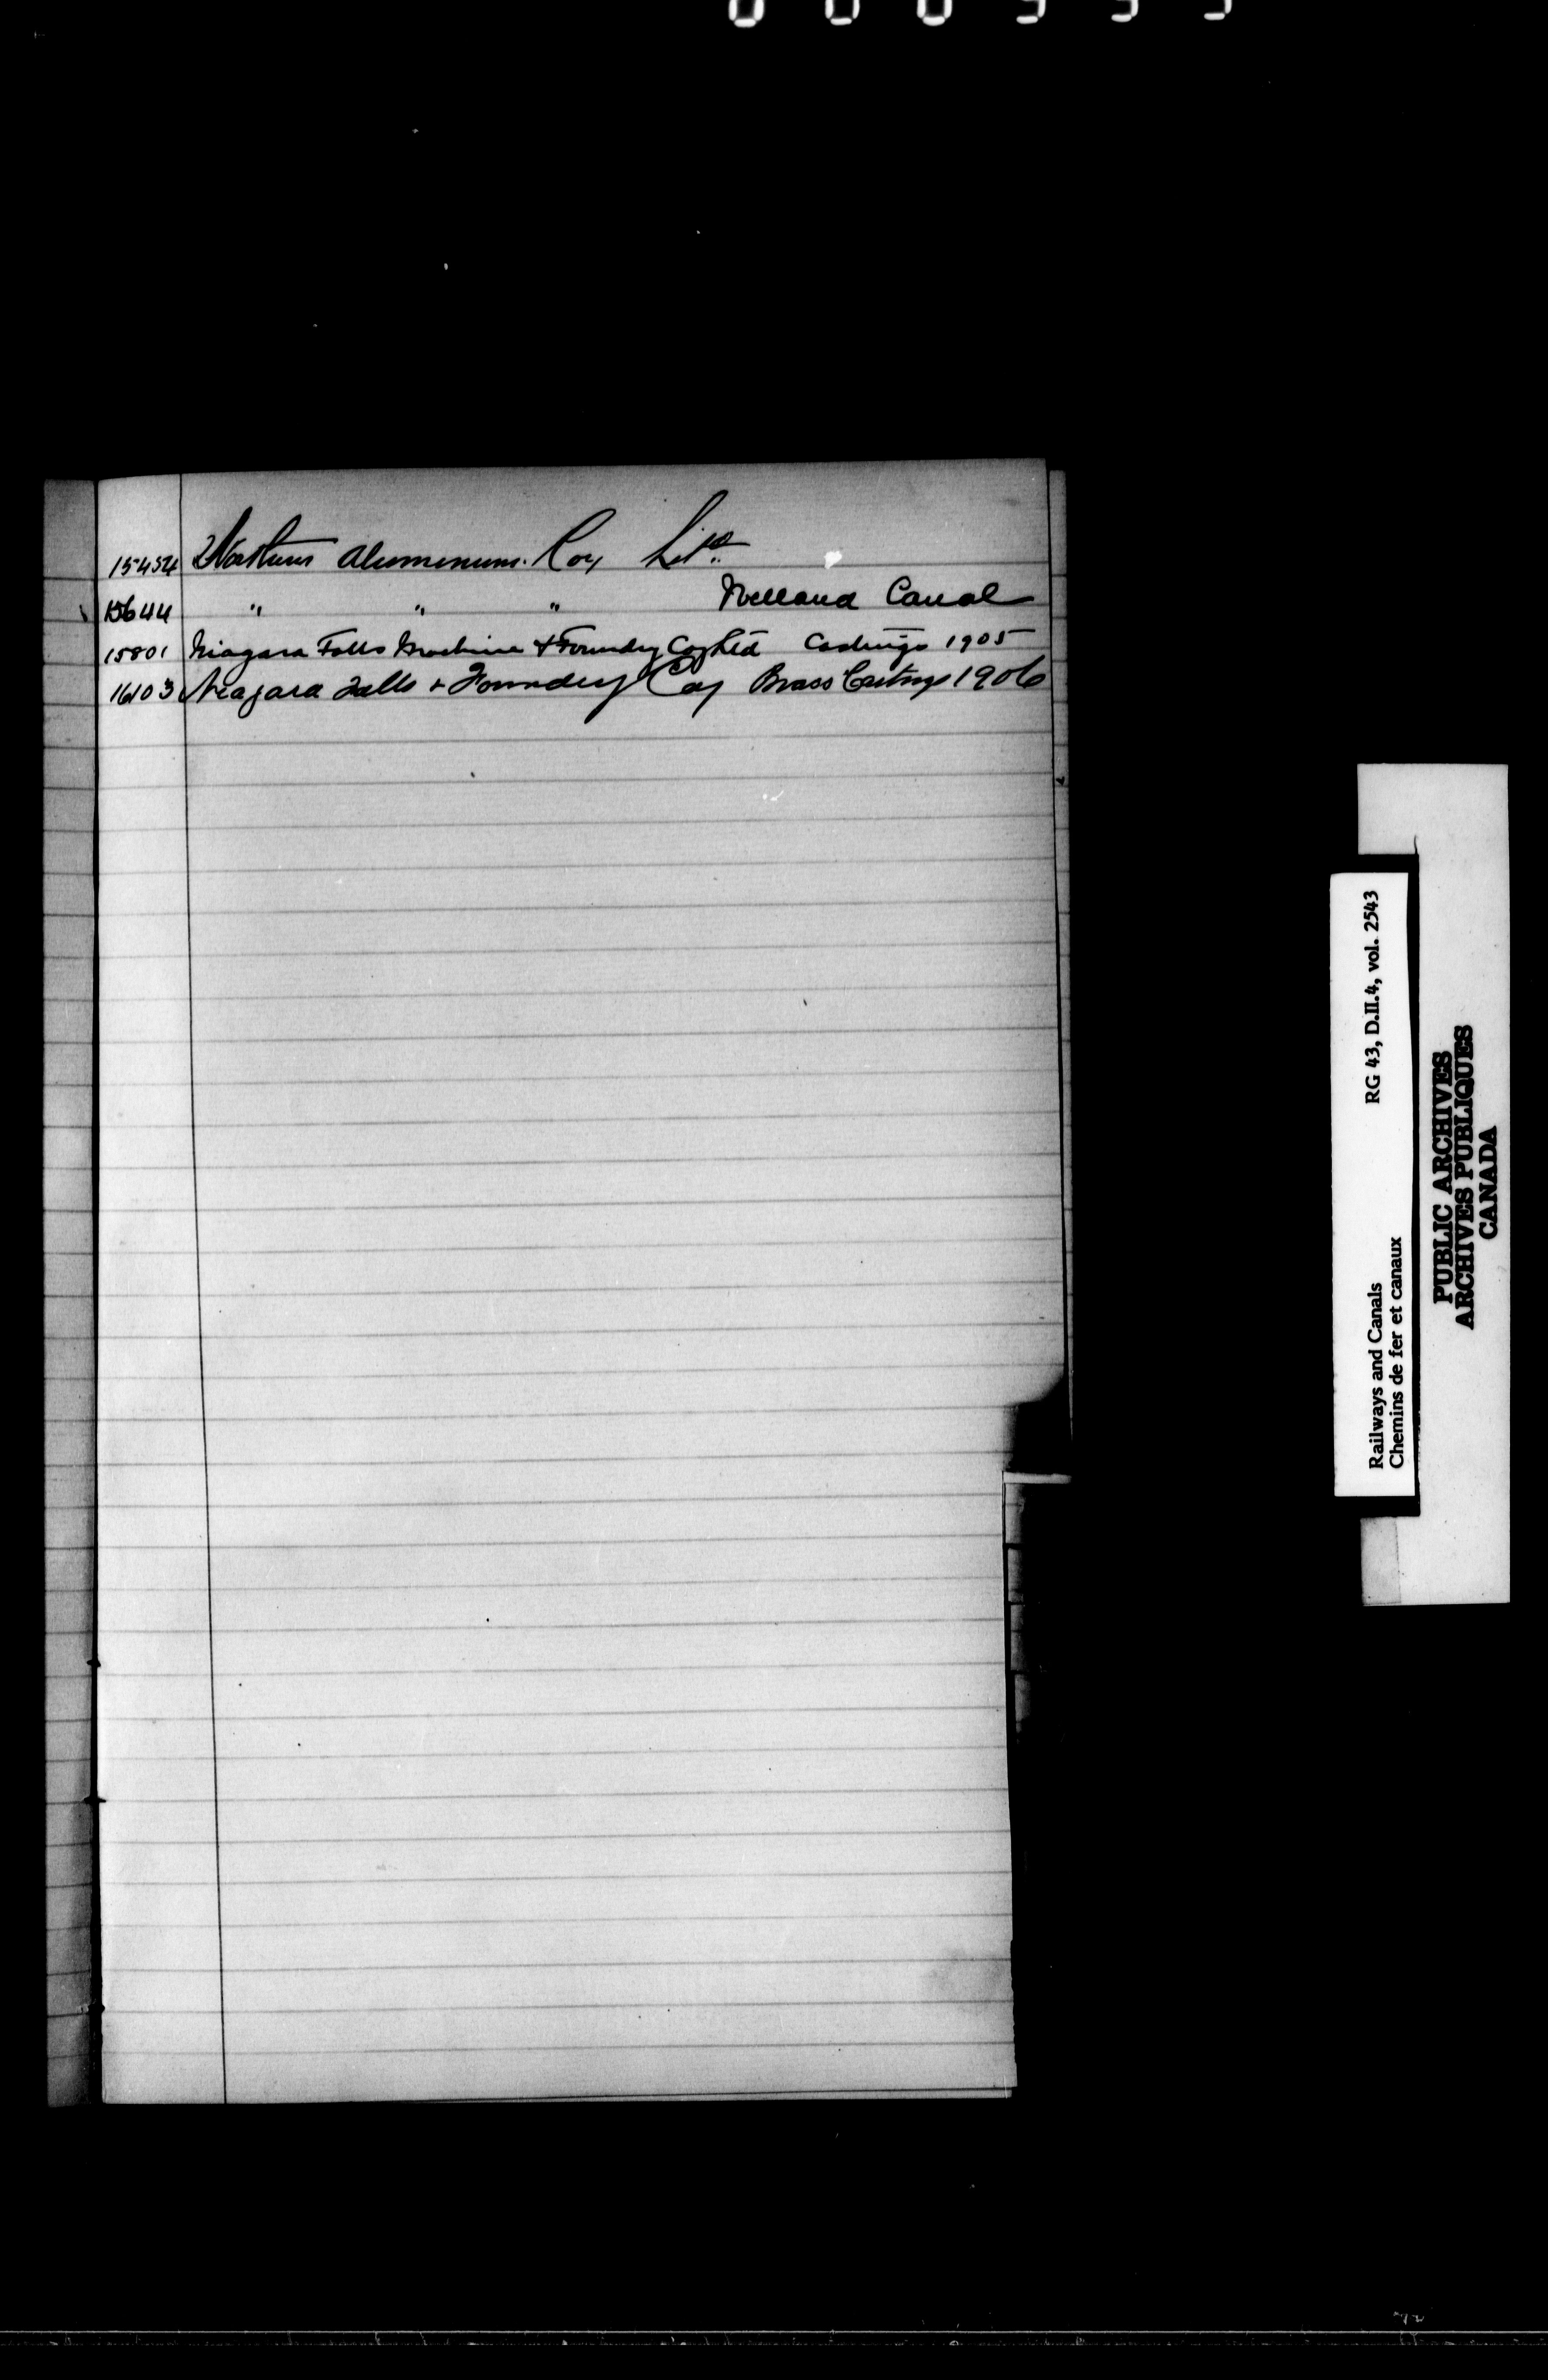 15454 Northern Aluminum Coy Ltd.
15644 " " " Welland Canal
15801 Niagara Falls Machine & Foundry Coy Ltd Castings 1905
16103 Niagara Falls & Foundry Coy Brass Castings 1906
RG 43, D.II.4, vol. 2543
Railways and Canals
Chemins de fer et canaux
PUBLIC ARCHIVES
ARCHIVES PUBLIQUES
CANADA